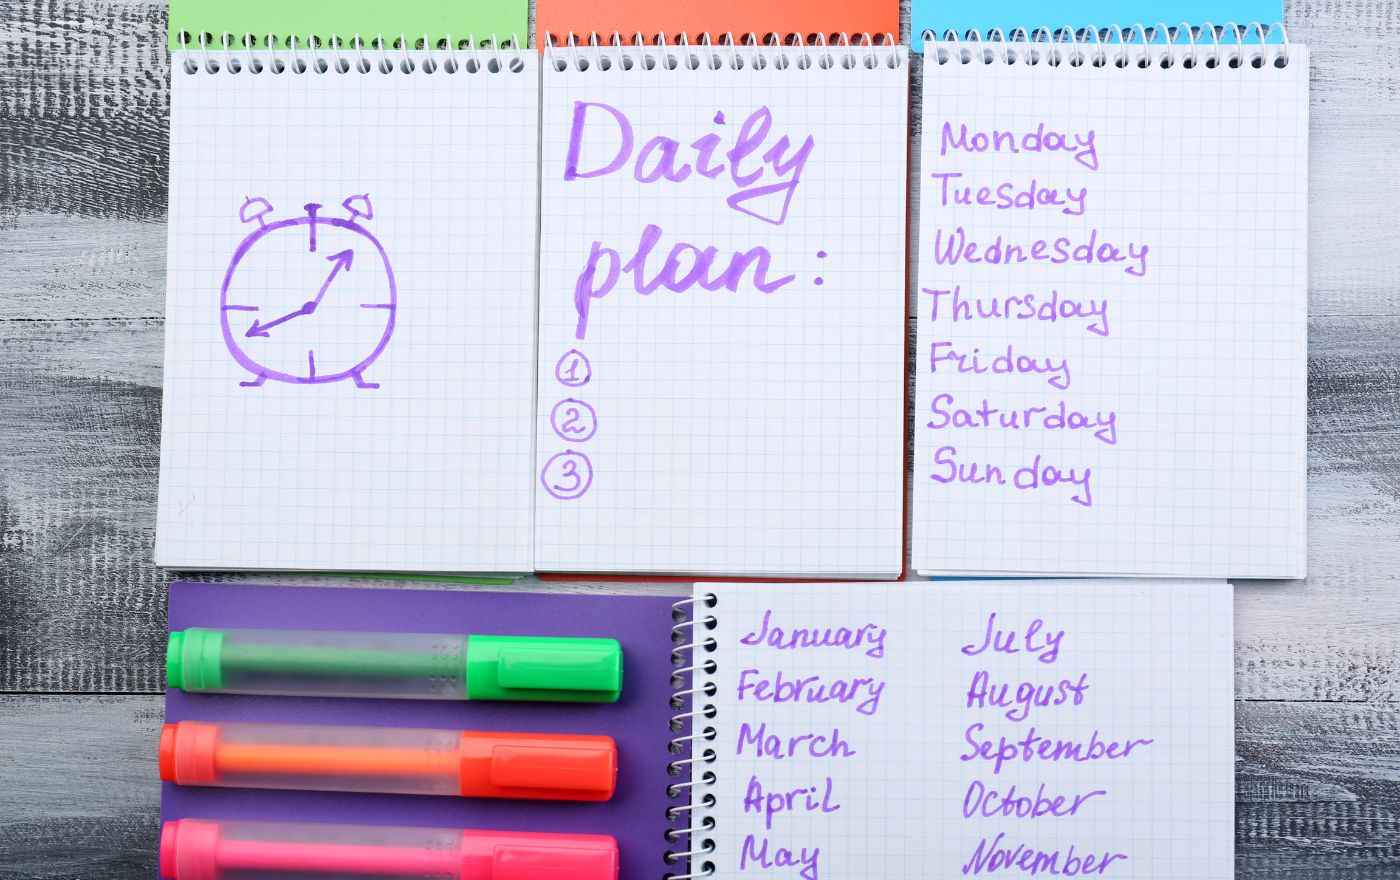 Daily
plan:
1
2
3
Monday
Tuesday
Wednesday
Thursday
Friday
Saturday
Sunday
January
February
March
April
May
July
August
September
October
November